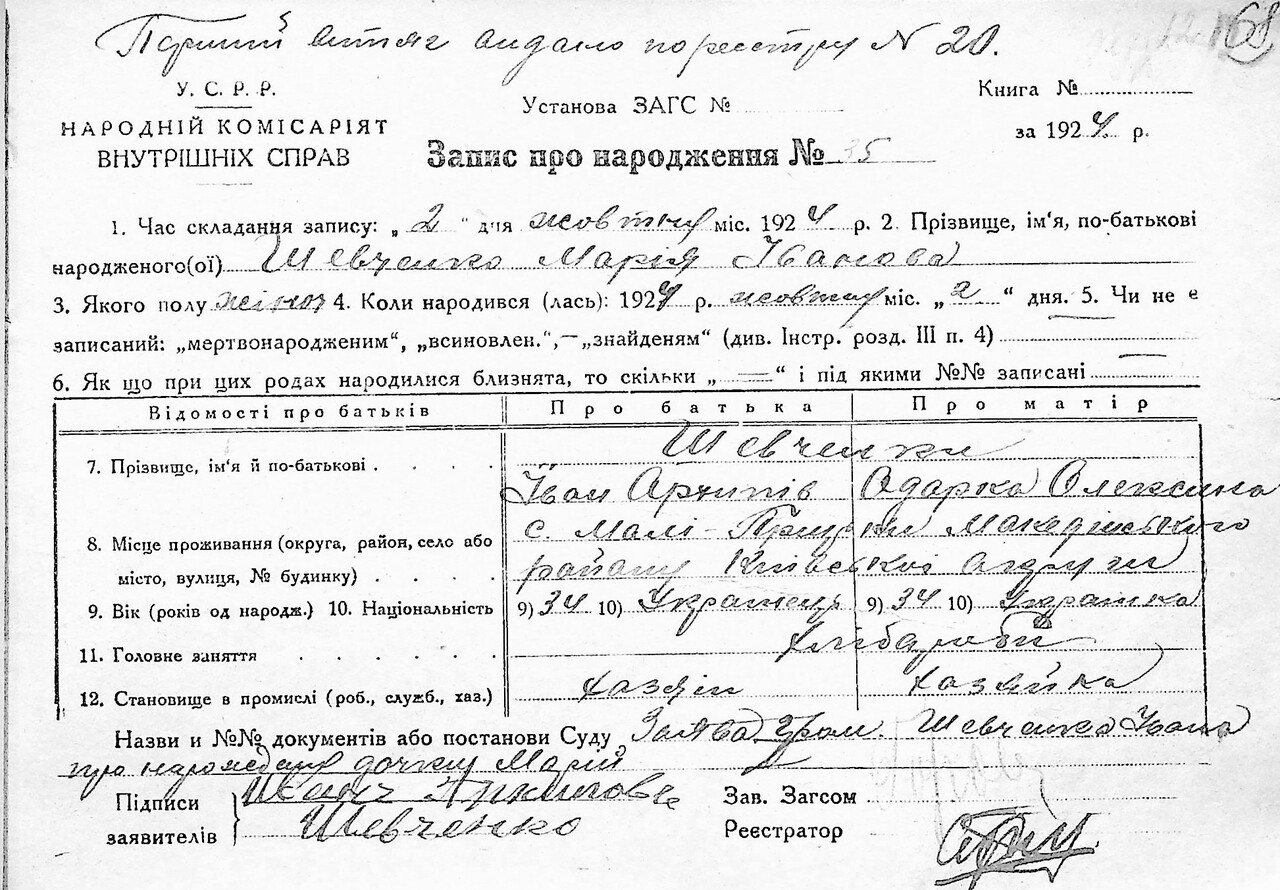 Перший витяг видано по реєстру N 20.
68
У. С. Р. Р.
НАРОДНІЙ КОМІСАРІЯТ
ВНУТРІШНІХ СПРАВ
Установа ЗАГС №
Книга №
за 1924 р.
Запис про народження № 35
1. Час складання запису: „ 2 " дня жовтня міс. 1924 р. 2. Прізвище, ім'я, по-батькові
народженого(ої) Шевченко Марія Іванова
3. Якого полу жіноч 4. Коли народився (лась): 1924 р. жовтня міс. „ 2 " дня. 5. Чи не є
записаний: „мертвонародженим", „всиновлен.",— „знайденям" (див. Інстр. розд. III п. 4)
6. Як що при цих родах народилися близнята, то скільки „ — " і під якими №№ записані —
Відомості про батьків Про батька Про матір
7. Прізвище, ім'я й по-батькові . . . . Шевченки
Іван Архипів Одарка Олексіїна
8. Місце проживання (округа, район, село або с. Малі- Макарівського
місто, вулиця, № будинку) . . . . району Київської округи
9. Вік (років од народж.) 10. Національність 9) 34 10) Українець 9) 34 10) Українка
11. Головне заняття . . . . . . Хлібороби
12. Становище в промислі (роб., служб., хаз.) Хазяїн Хазяйка
Назви и №№ документів або постанови Суду Заява гром. Шевченка Івана
про народження дочки Марії
Підписи
заявителів
Иванъ Архипович
Шевченко
Зав. Загсом
Реєстратор